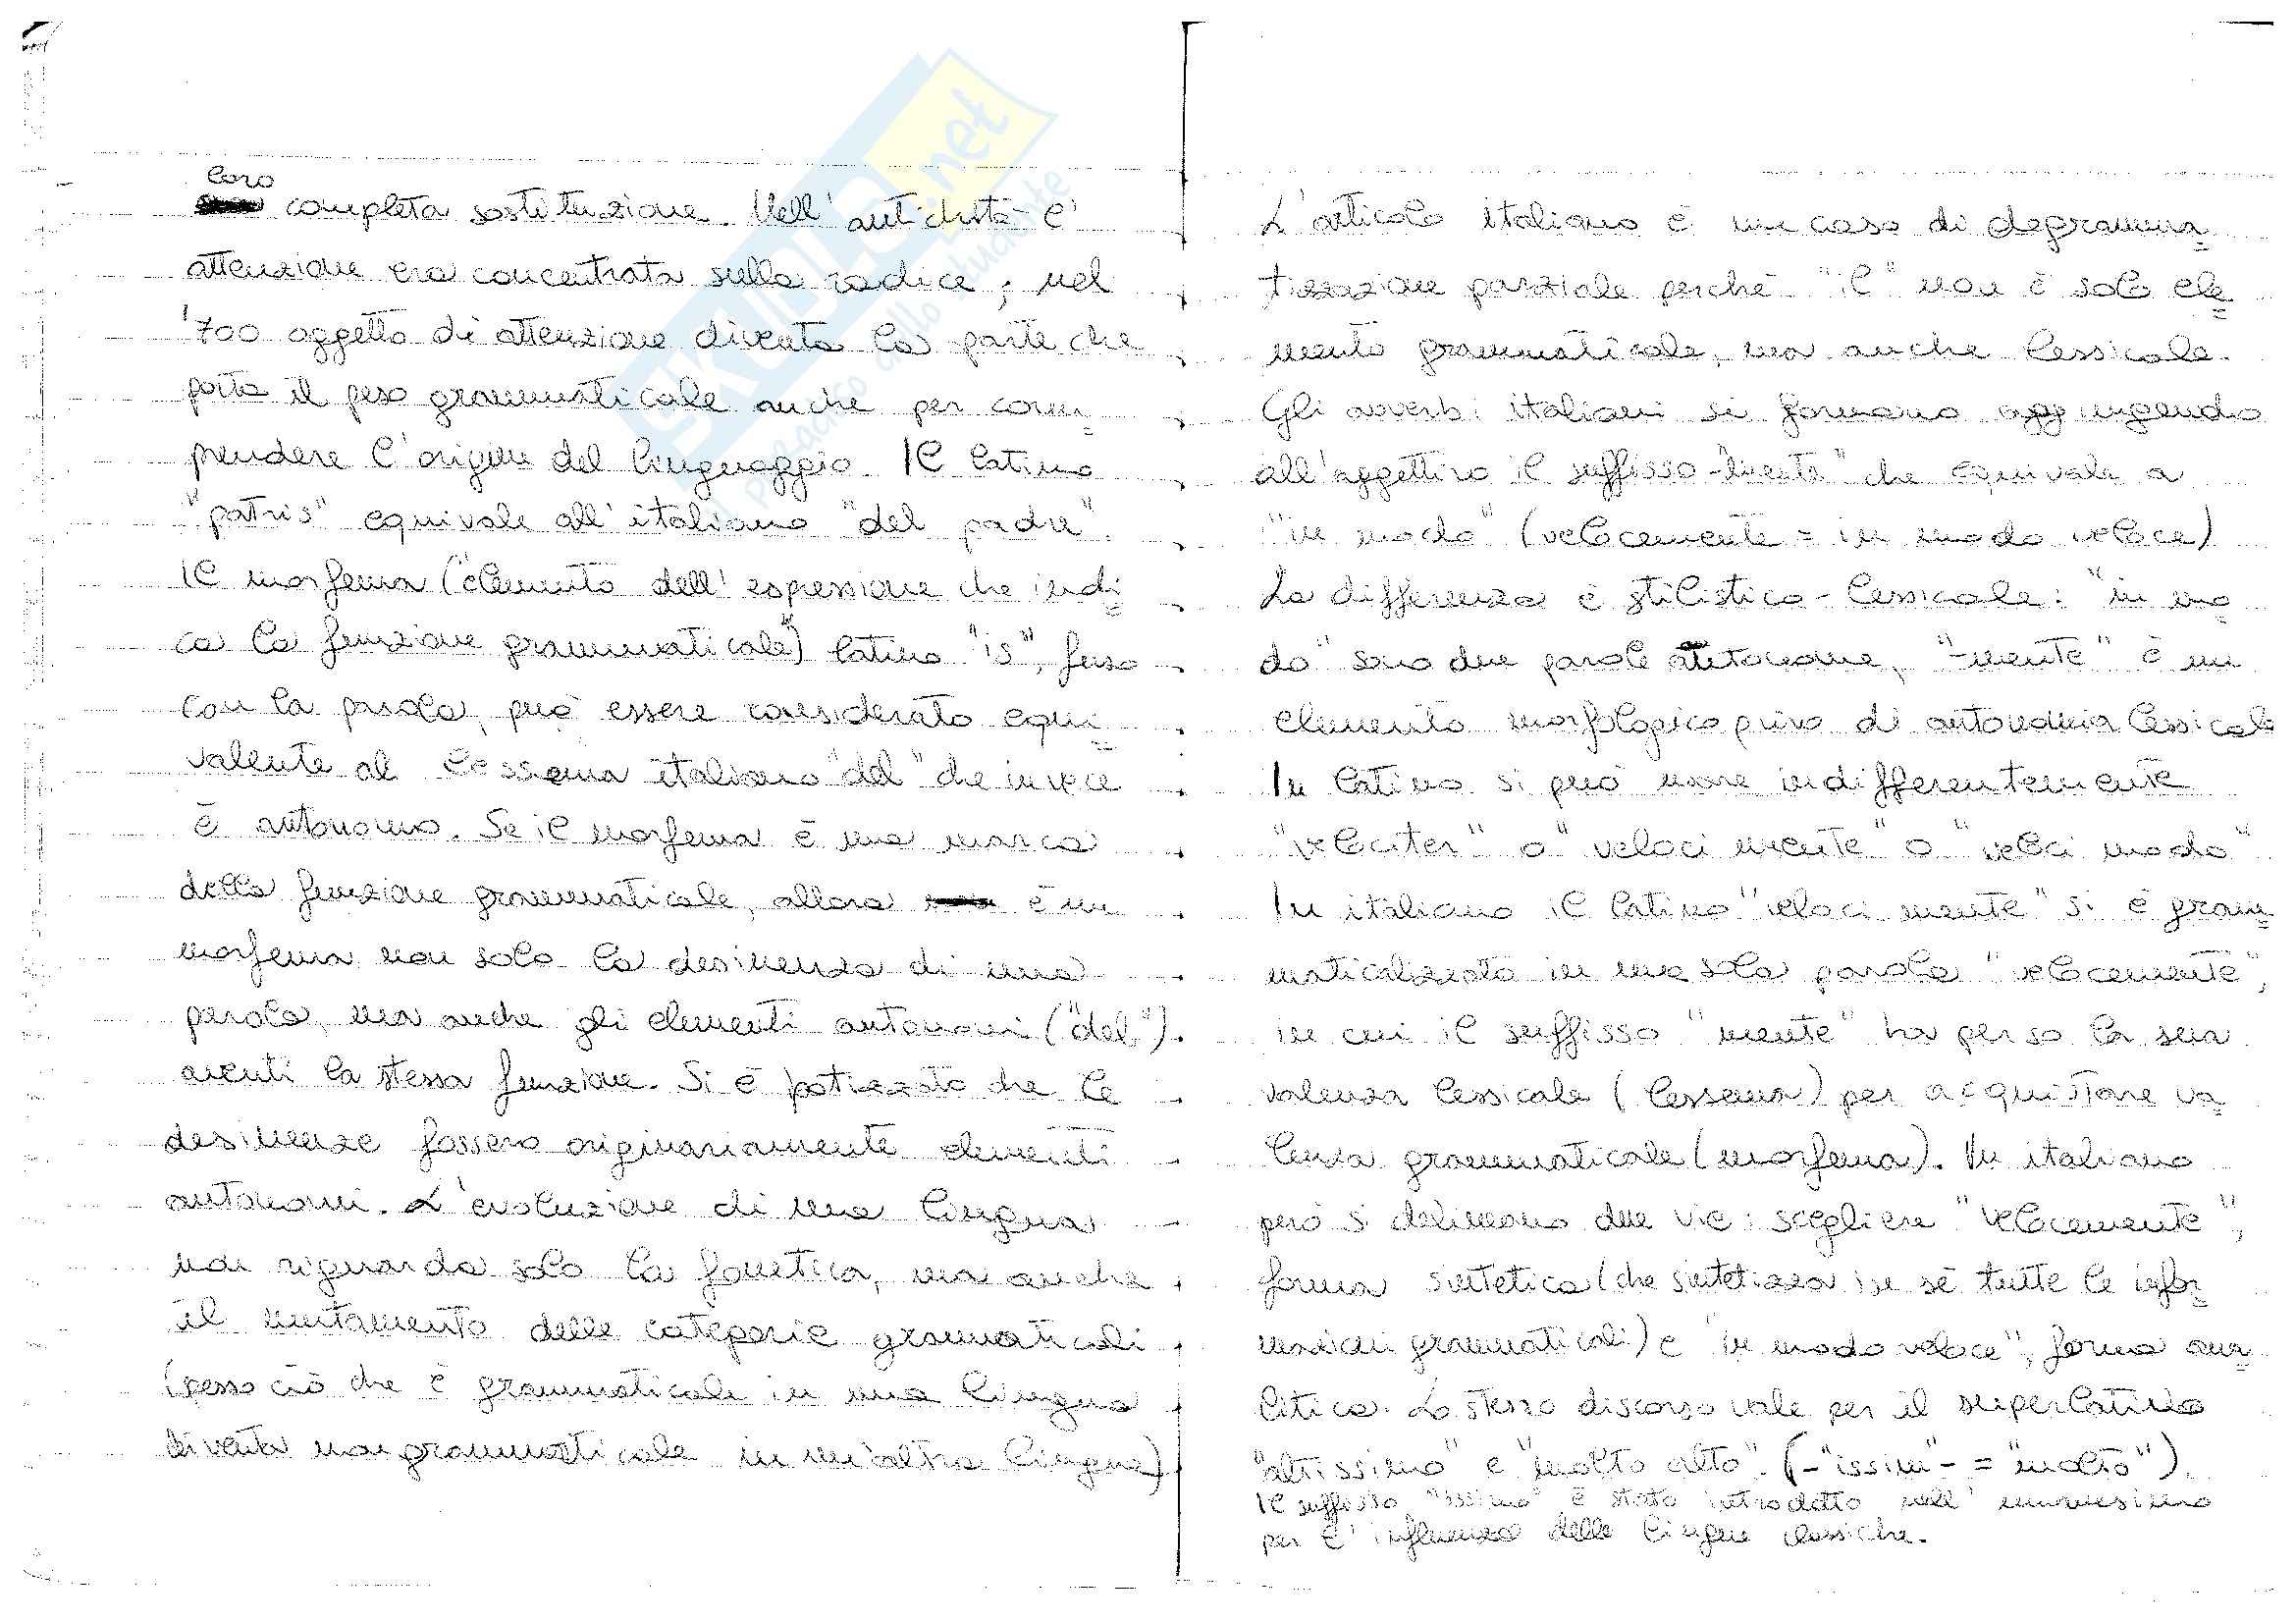 loro
completa sostituzione. Nell'antichità l'
attenzione era concentrata sulla radice; nel
'700 oggetto di attenzione diventa la parte che
porta il peso grammaticale anche per com=
prendere l'origine del linguaggio. Il latino
"patris" equivale all'italiano "del padre".
Il morfema ("elemento dell'espressione che indi=
ca la funzione grammaticale") latino "is", fuso
con la parola, può essere considerato equi=
valente al lessema italiano "del" che invece
è autonomo. Se il morfema è una marca
della funzione grammaticale, allora è un
morfema non solo la desinenza di una
parola, ma anche gli elementi autonomi ("del").
aventi la stessa funzione. Si è ipotizzato che le
desinenze fossero originariamente elementi
autonomi. L'evoluzione di una lingua
non riguarda solo la fonetica, ma anche
il mutamento delle categorie grammaticali
(spesso ciò che è grammaticale in una lingua
diventa non grammaticale in un'altra lingua)
L'articolo italiano è un caso di degramma=
tizzazione parziale perché "il" non è solo ele=
mento grammaticale, ma anche lessicale.
Gli avverbi italiani si formano aggiungendo
all'aggettivo il suffisso -"mente" che equivale a
"in modo" (velocemente = in modo veloce)
La differenza è stilistico-lessicale: "in mo=
do" sono due parole autonome, "-mente" è un
elemento morfologico privo di autonomia lessicale
In latino si può usare indifferentemente
"velociter" o "veloci mente" o "veloci modo"
In italiano il latino "veloci mente" si è gram=
maticalizzato in una sola parola "velocemente",
in cui il suffisso "mente" ha perso la sua
valenza lessicale (lessema) per acquistare va=
lenza grammaticale (morfema). In italiano
però si delineano due vie: scegliere "velocemente",
forma sintetica (che sintetizza in sé tutte le infor=
mazioni grammaticali) e "in modo veloce", forma ana=
litica. Lo stesso discorso vale per il superlativo
"altissimo" e "molto alto". (-"issim"- = "molto").
Il suffisso "issimo" è stato introdotto nell'umanesimo
per l'influenza delle lingue classiche.
SKUOLA.net